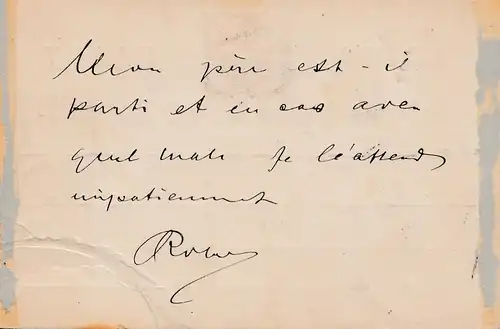 Mon père est-il
parti et en cas aven
quel train Je l'attends
impatiemment